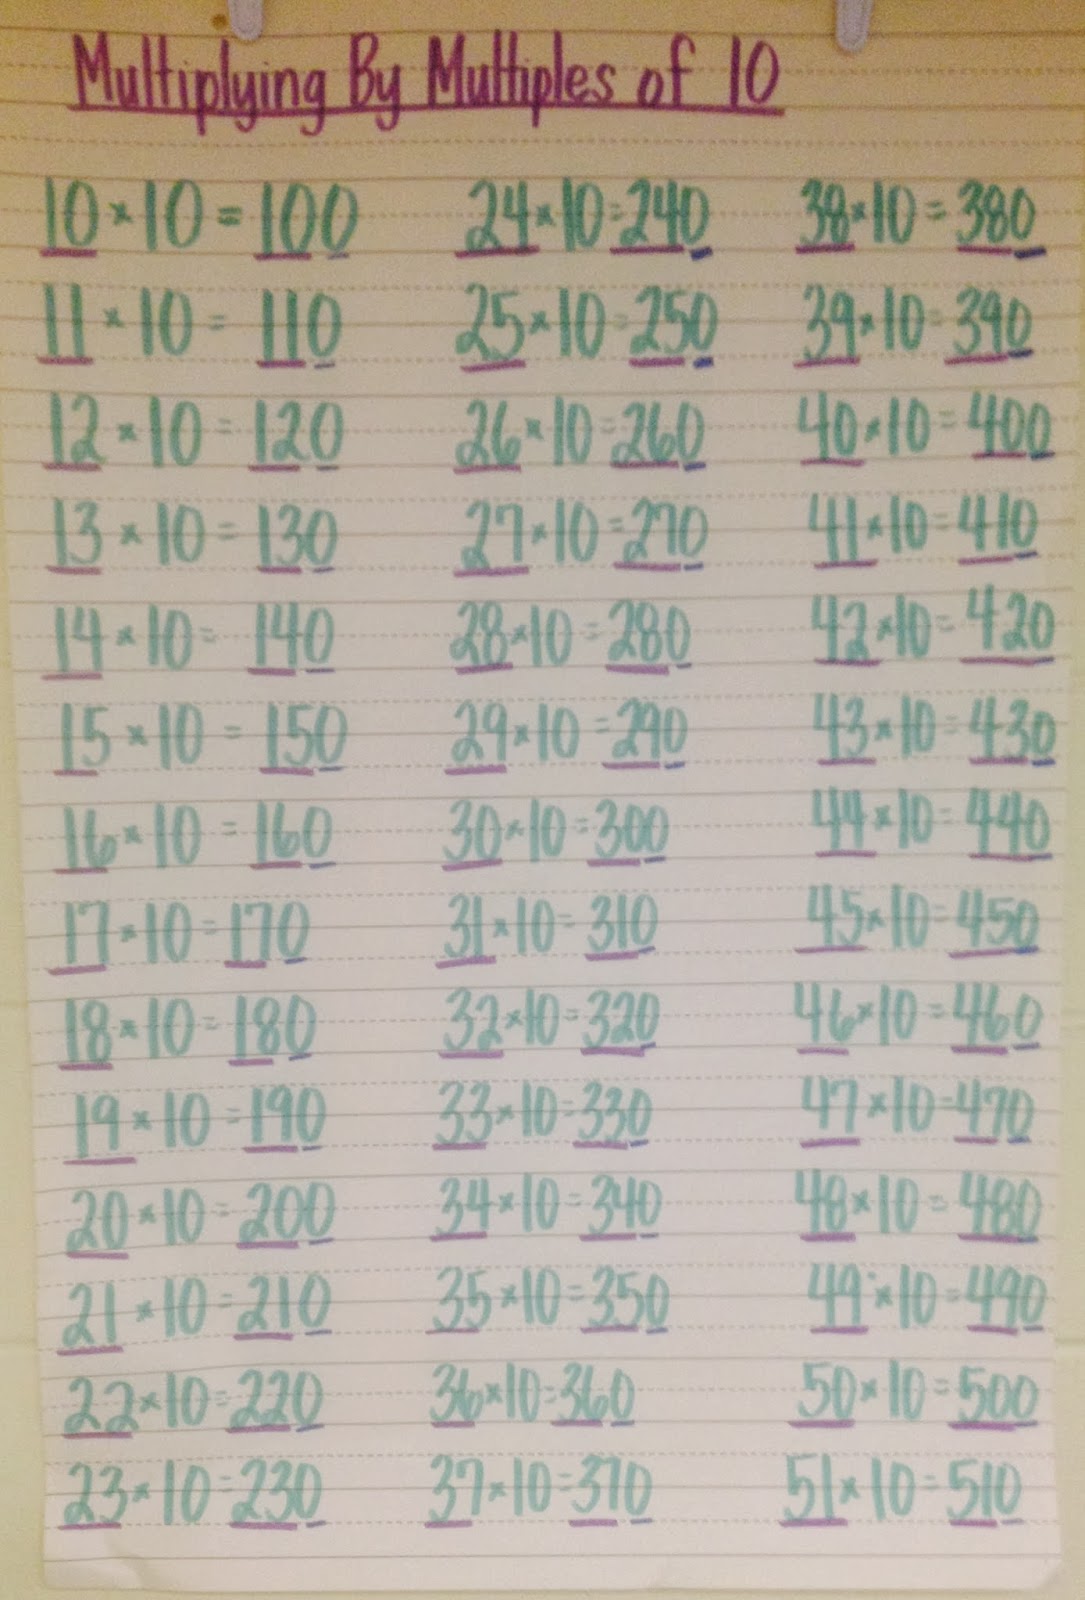 Multiplying By Multiples of 10
10 × 10 = 100
11 × 10 = 110
12 × 10 = 120
13 × 10 = 130
14 × 10 = 140
15 × 10 = 150
16 × 10 = 160
17 × 10 = 170
18 × 10 = 180
19 × 10 = 190
20 × 10 = 200
21 × 10 = 210
22 × 10 = 220
23 × 10 = 230
24 × 10 = 240
25 × 10 = 250
26 × 10 = 260
27 × 10 = 270
28 × 10 = 280
29 × 10 = 290
30 × 10 = 300
31 × 10 = 310
32 × 10 = 320
33 × 10 = 330
34 × 10 = 340
35 × 10 = 350
36 × 10 = 360
37 × 10 = 370
38 × 10 = 380
39 × 10 = 390
40 × 10 = 400
41 × 10 = 410
42 × 10 = 420
43 × 10 = 430
44 × 10 = 440
45 × 10 = 450
46 × 10 = 460
47 × 10 = 470
48 × 10 = 480
49 × 10 = 490
50 × 10 = 500
51 × 10 = 510